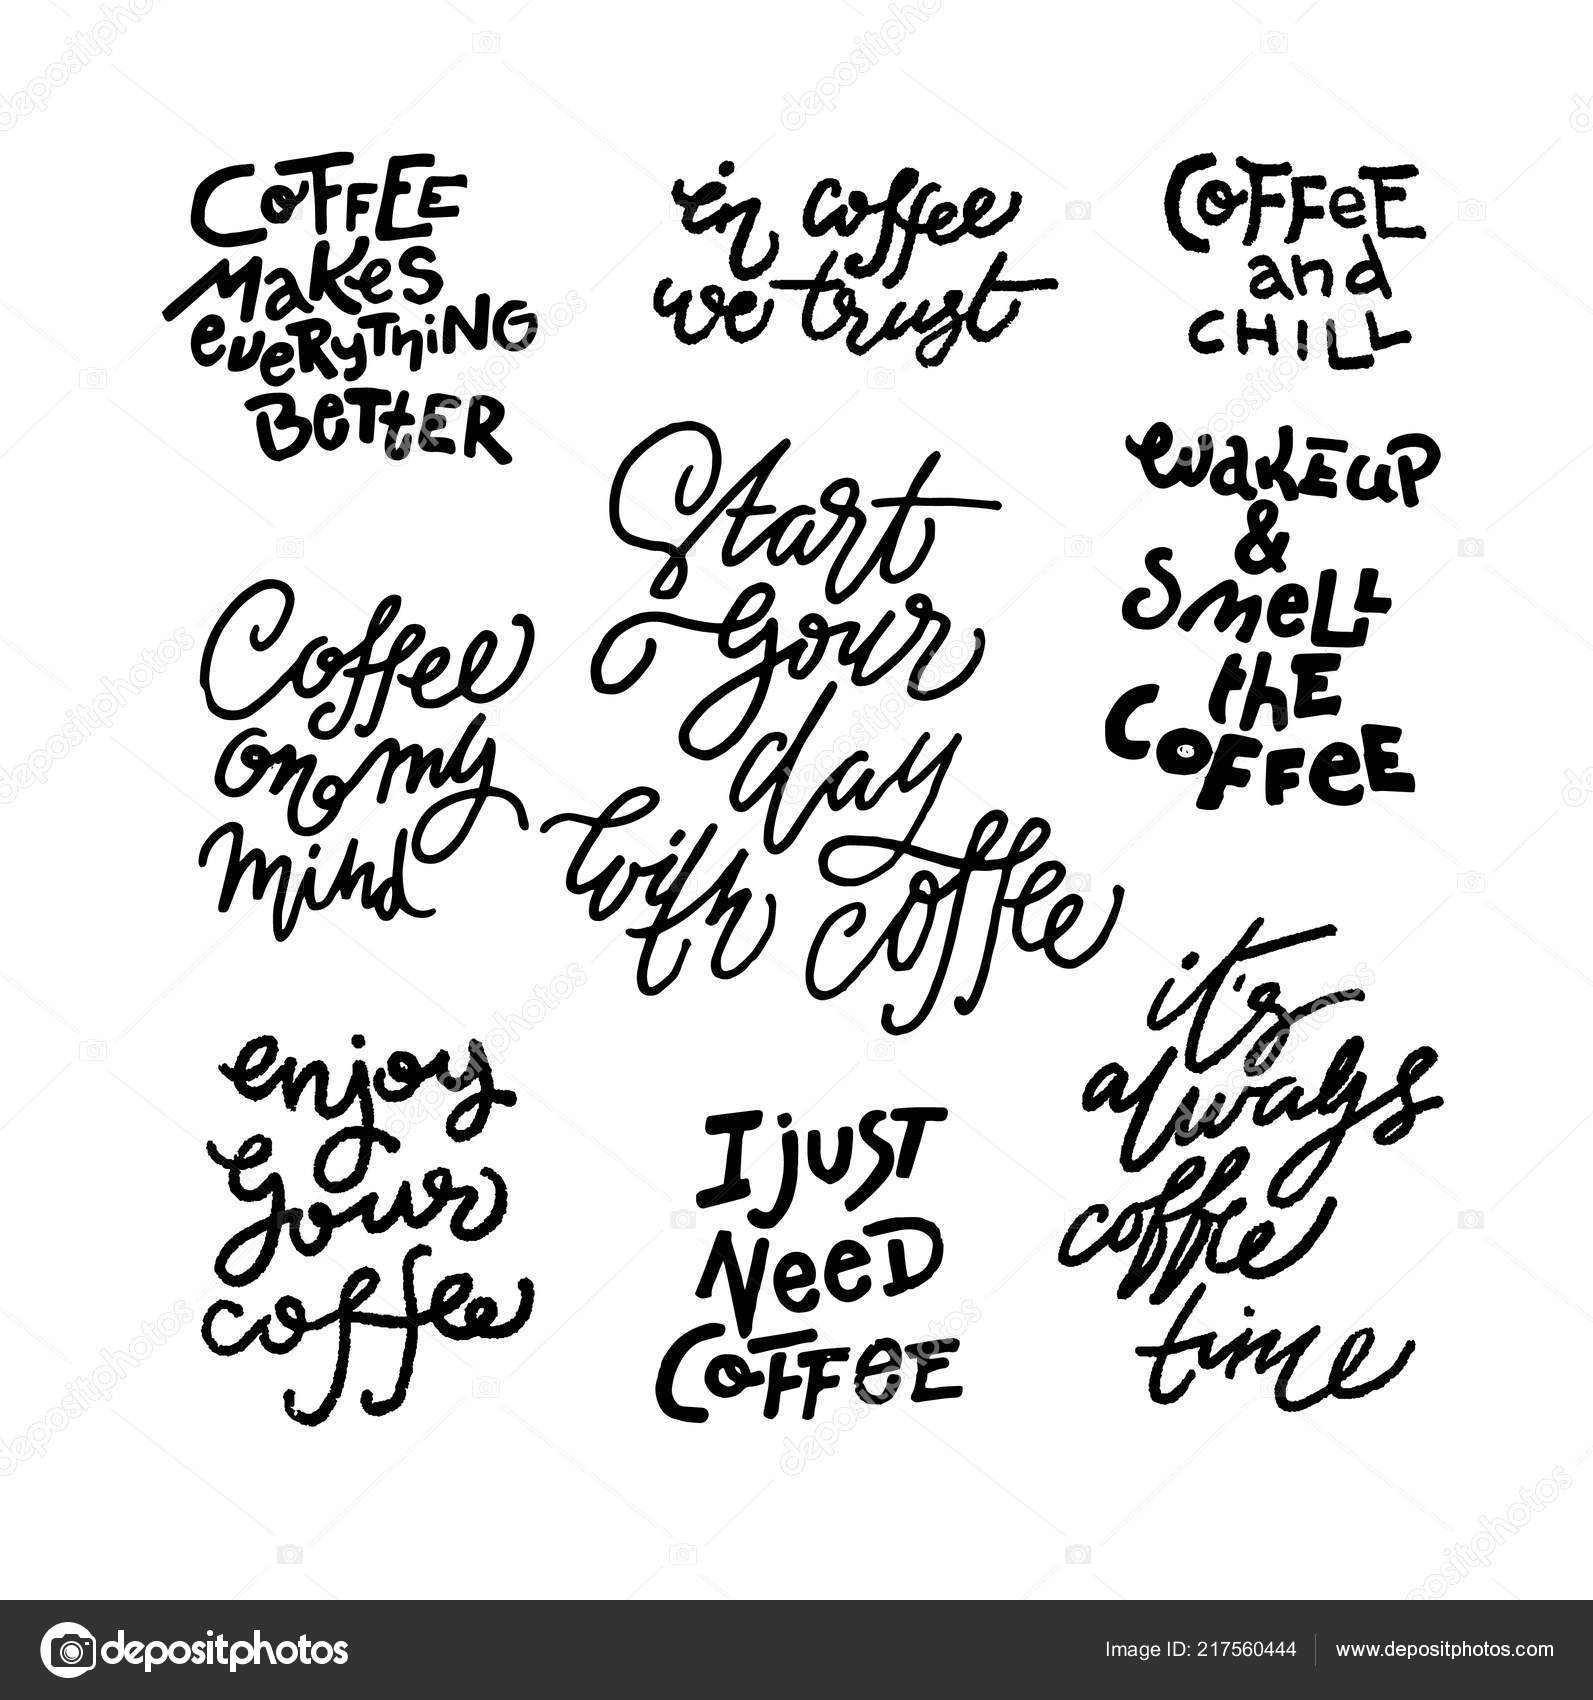 COFFEE
MAKES
EVERYTHING
BETTER
in coffee
we trust
COFFEE
and
CHILL
Start
your
day
with coffee
WAKE UP
&
SMELL
THE
COFFEE
Coffee
on my
mind
enjoy
your
coffee
I JUST
NEED
COFFEE
it's
always
coffee
time
depositphotos
Image ID: 217560444
www.depositphotos.com